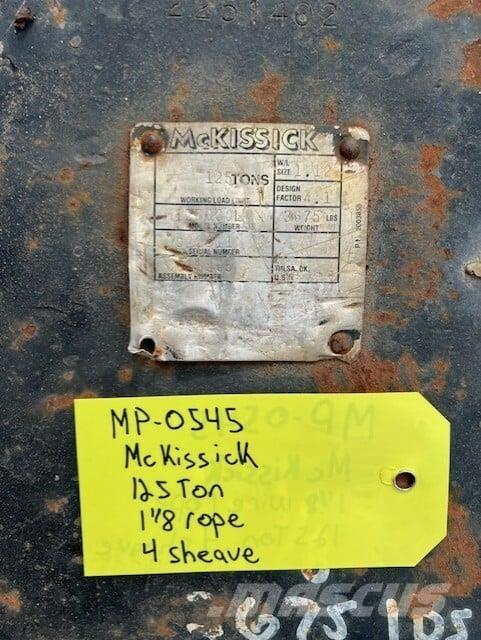 2251402
McKISSICK
125 TONS
WORKING LOAD LIMIT
W/L
SIZE 1.12
DESIGN
FACTOR 4.1
MODEL NUMBER
3675 LBS
WEIGHT
SERIAL NUMBER
ASSEMBLY NUMBER
TULSA, OK.
U.S.A.
MP-0545
McKissick
125 Ton
1 1/8 rope
4 sheave
MASCUS
675 lbs